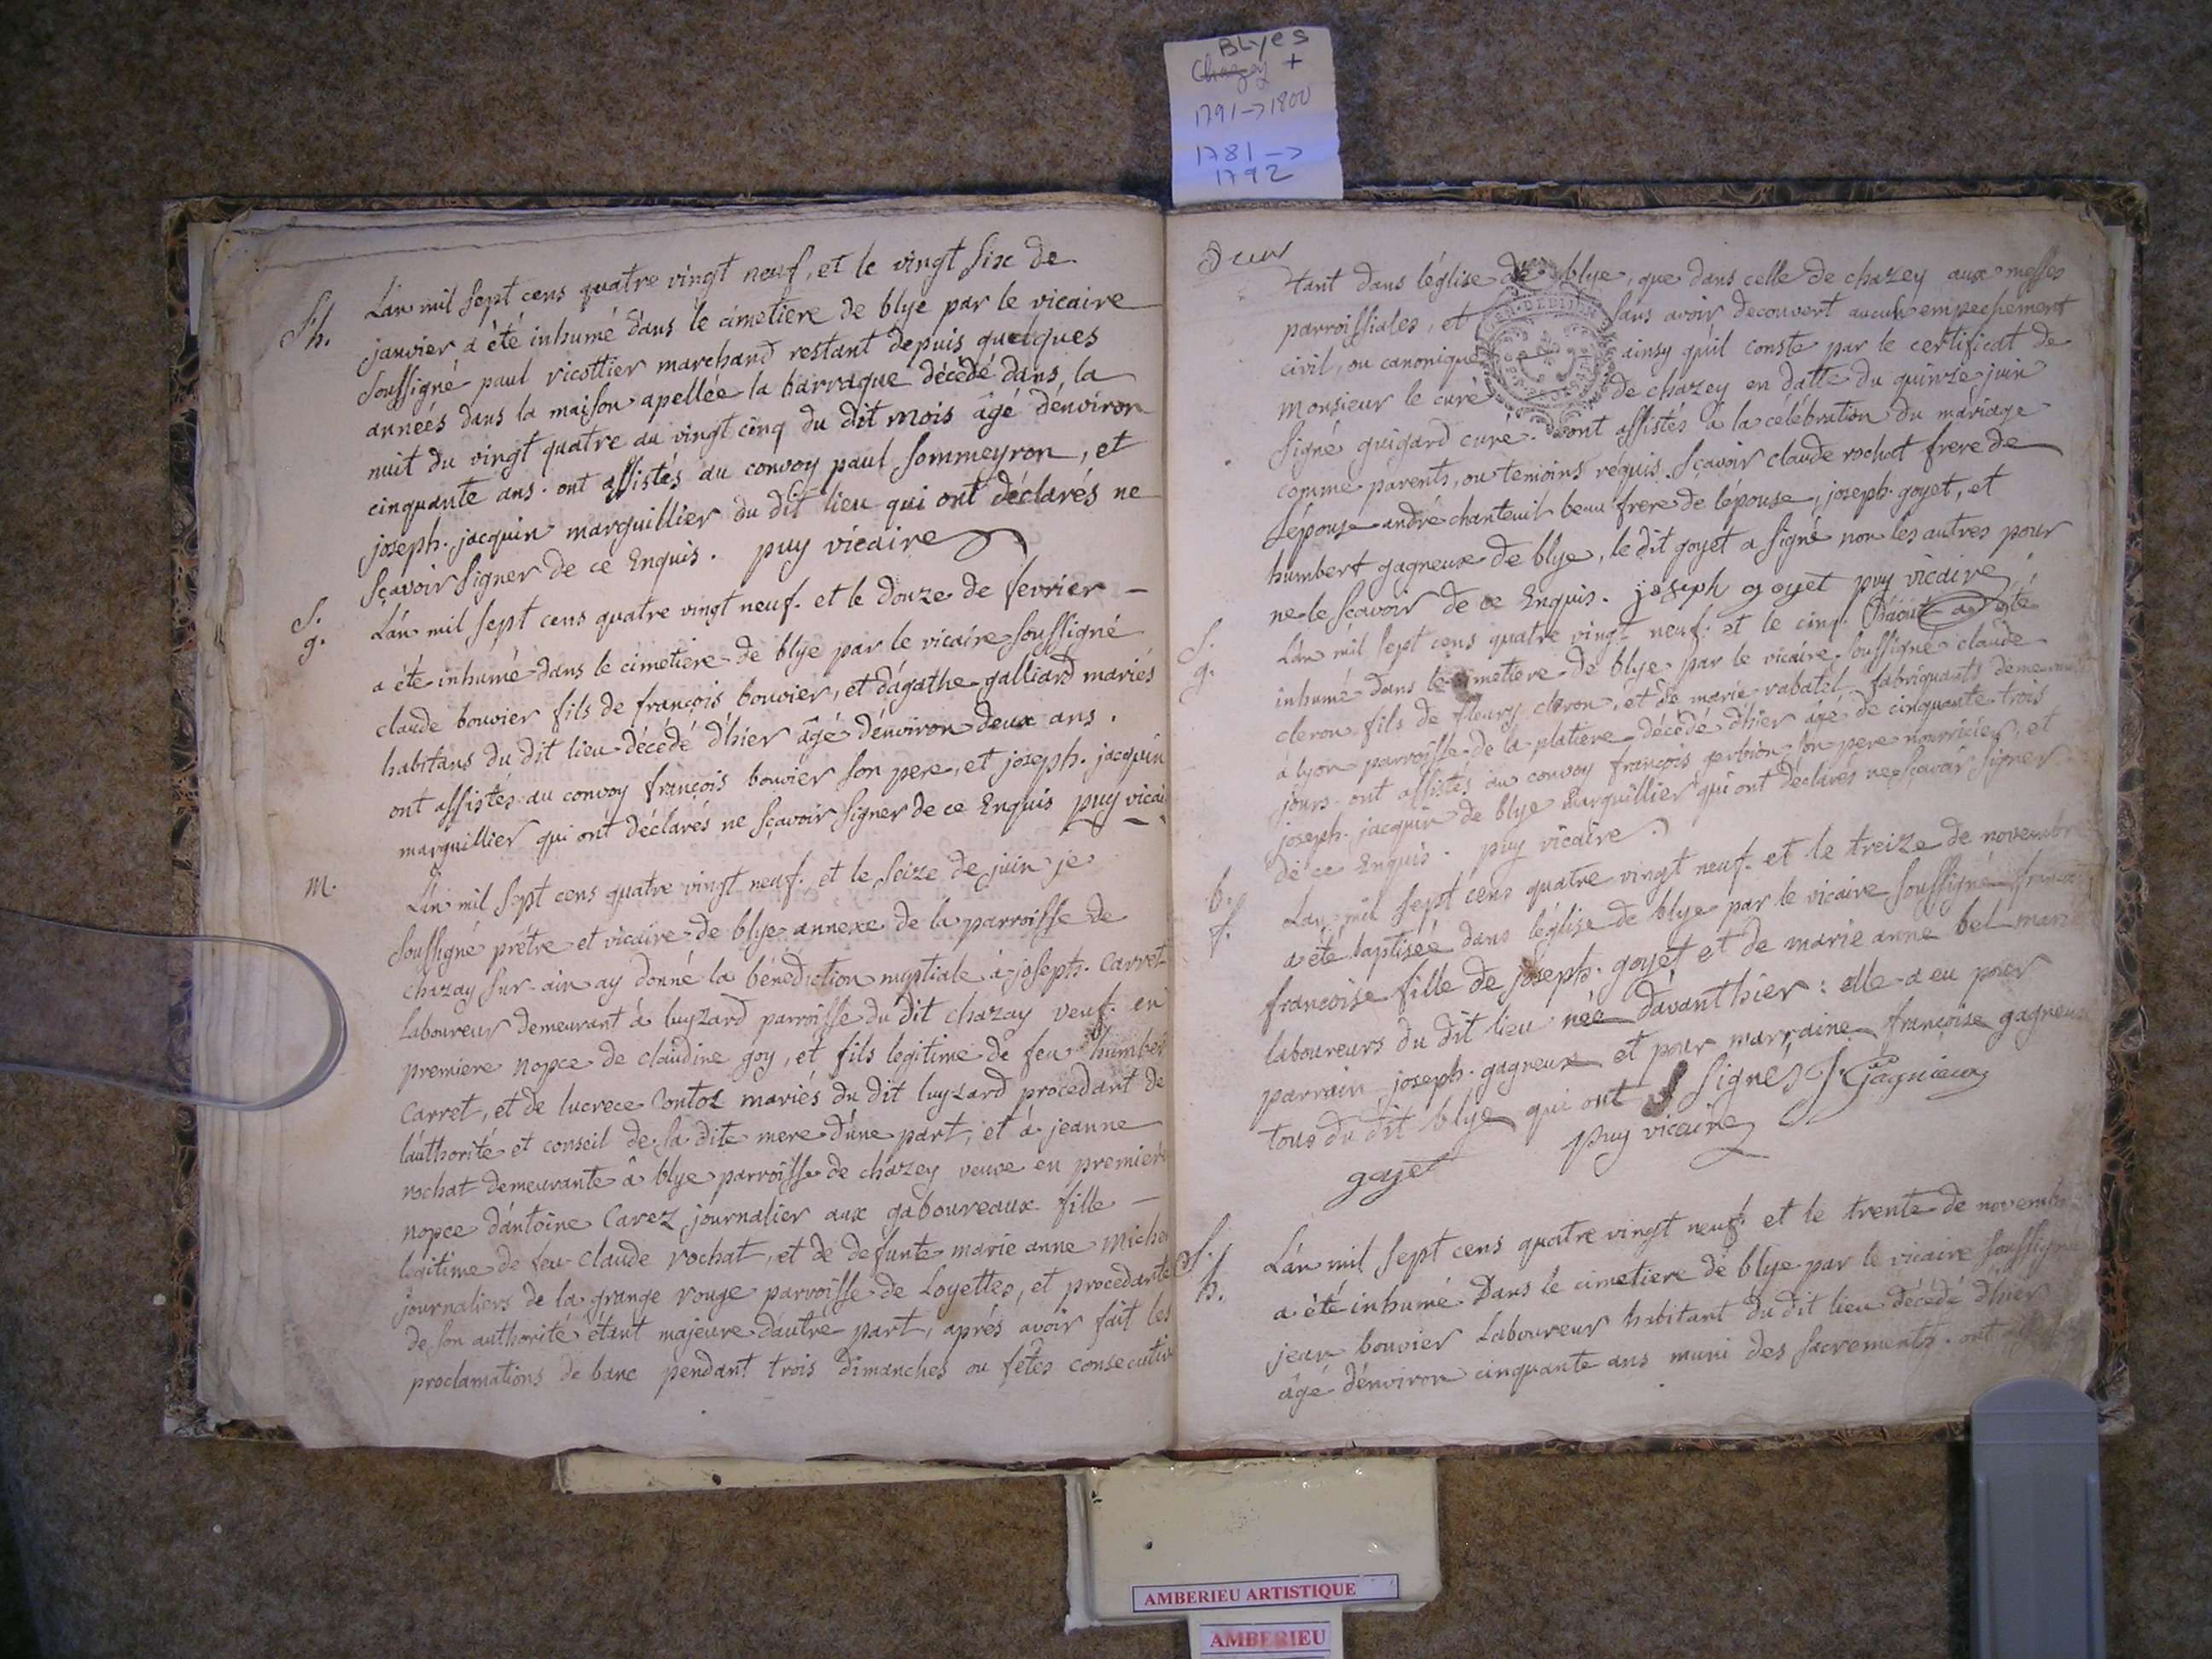 BLyes
Chazey +
1791->1800
1781->
1792
S. h.
L'an mil sept cens quatre vingt neuf, et le vingt six de
janvier a été inhumé dans le cimetiere de blye par le vicaire
soussigné paul ricottier marchand restant depuis quelques
années dans la maison apellée la barraque décédé dans la
nuit du vingt quatre au vingt cinq du dit mois âgé d'environ
cinquante ans. ont assistés au convoy paul sommeyron, et
joseph. jacquin marguillier du dit lieu qui ont déclarés ne
sçavoir signer de ce Enquis. puy vicaire
S. g.
L'an mil sept cens quatre vingt neuf. et le douze de fevrier -
a été inhumé dans le cimetiere de blye par le vicaire soussigné
claude bouvier fils de françois bouvier, et d'agathe galliard mariés
habitans du dit lieu décédé d'hier âgé d'environ deux ans.
ont assistés au convoy françois bouvier son pere, et joseph. jacquin
marguillier qui ont déclarés ne sçavoir signer de ce Enquis puy vicai
m.
L'an mil sept cens quatre vingt neuf. et le seize de juin je
soussigné prêtre et vicaire de blye annexe de la parroisse de
chazay sur-ain ay donné la bénédiction nuptiale à joseph. Carret
laboureur demeurant à luyzard parroisse du dit chazay veuf. en
premiere nopce de claudine goy, et fils legitime de feu humber
Carret, et de lucrece mariés du dit luyzard procedant de
l'authorité et conseil de sa dite mere d'une part, et à jeanne
rochat demeurante à blye parroisse de chazey veuve en premiere
nopce d'antoine Carez journalier aux gaboureaux fille -
legitime de feu Claude rochat, et de defunte marie anne miche
journaliers de la grange rouge parroisse de Loyettes, et procedante
de son authorité étant majeure d'autre part, aprés avoir fait les
proclamations de banc pendant trois dimanches ou fêtes consecutiv
Deux
tant dans l'église de blye, que dans celle de chazey aux messes
parroissiales, et sans avoir decouvert aucun empechement
civil, ou canonique ainsy qu'il conste par le certificat de
monsieur le curé de chazey en datte du quinze juin
signé guigard curé. ont assistés à la célébration du mariage
comme parents, ou temoins réquis. sçavoir claude rochat frere de
l'épouse andré chanteuil beau frere de l'épouse, joseph. goyet, et
humbert gagneux de blye, le dit goyet a signé non les autres pour
ne le sçavoir de ce Enquis. joseph goyet puy vicaire
S. g.
L'an mil sept cens quatre vingt neuf. et le cinq d'aout a été
inhumé dans le cimetiere de blye par le vicaire soussigné claude
cleron fils de fleury cleron, et de marie rabatel fabriquants demeurants
à lyon parroisse de la platiere décédé d'hier âgé de cinquante trois
jours. ont assistés au convoy françois gerbion son pere nourricier, et
joseph. jacquin de blye marguillier qui ont déclarés ne sçavoir signer
de ce Enquis. puy vicaire
b. f.
L'an mil sept cens quatre vingt neuf. et le treize de novembre
a été baptisée dans l'église de blye par le vicaire soussigné
francoise fille de joseph. goyet et de marie anne bel mariés
laboureurs du dit lieu née d'avanthier: elle a eu pour
parrain joseph. gagneux et pour marraine françoise gagneux
tous du dit blye qui ont signés J. Gagnieux
goyet puy vicaire
S. h.
L'an mil sept cens quatre vingt neuf. et le trente de novembre
a été inhumé dans le cimetiere de blye par le vicaire soussigné
jean bouvier Laboureur habitant du dit lieu décédé d'hier
âgé d'environ cinquante ans muni des sacrements. ont
AMBERIEU ARTISTIQUE
AMBERIEU